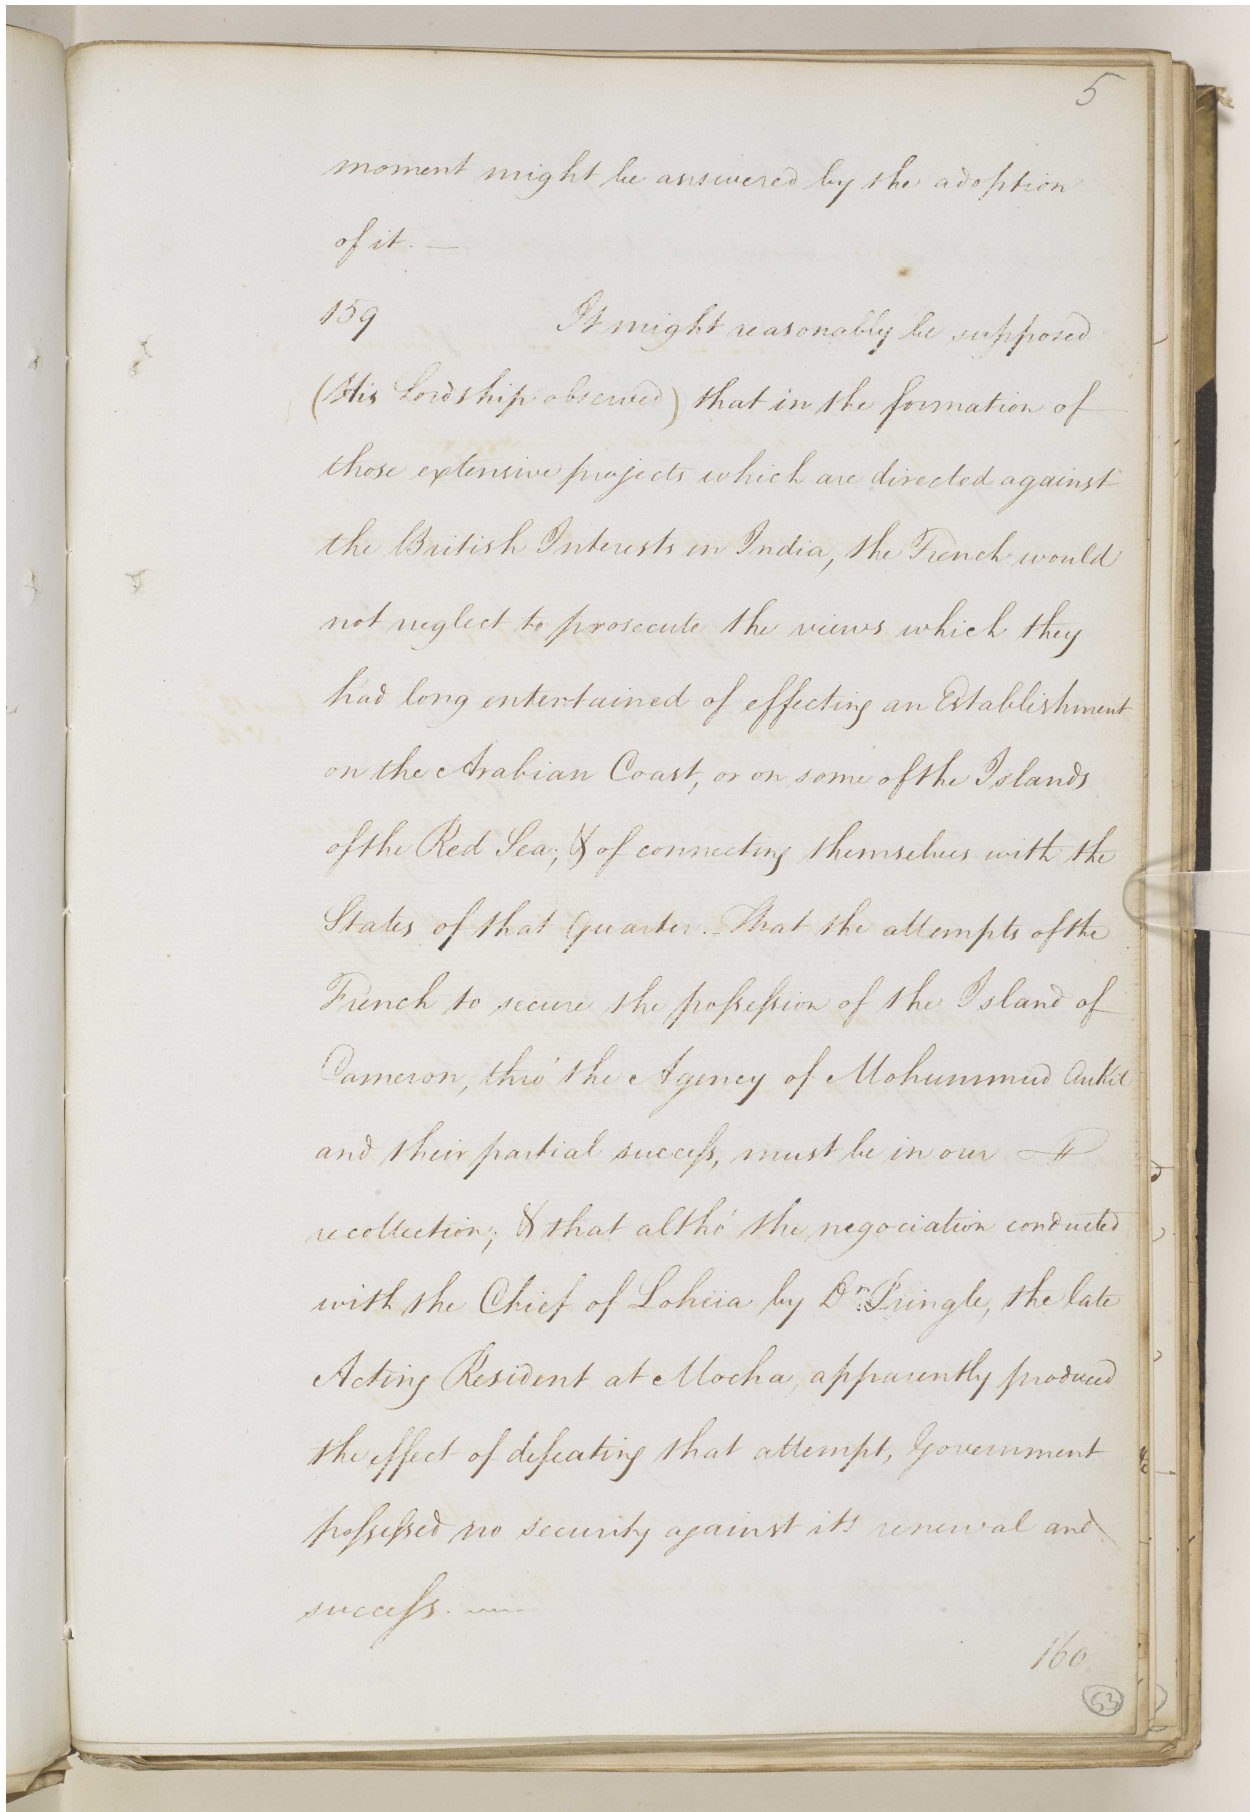 5
moment might be answered by the adoption
of it. —
159 It might reasonably be supposed
(His Lordship observed) that in the formation of
those extensive projects which are directed against
the British Interests in India, the French would
not neglect to prosecute the views which they
had long entertained of effecting an Establishment
on the Arabian Coast, or on some of the Islands
of the Red Sea; & of connecting themselves with the
States of that Quarter. That the attempts of the
French to secure the poſseſsion of the Island of
Cameron, thro' the Agency of Mohummud Aukil
and their partial succeſs, must be in our
recollection; & that altho' the negociation conducted
with the Chief of Loheia by Dr. Pringle, the late
Acting Resident at Mocha, apparently produced
the effect of defeating that attempt, Government
poſseſsed no security against its renewal and
succeſs. —
160
53